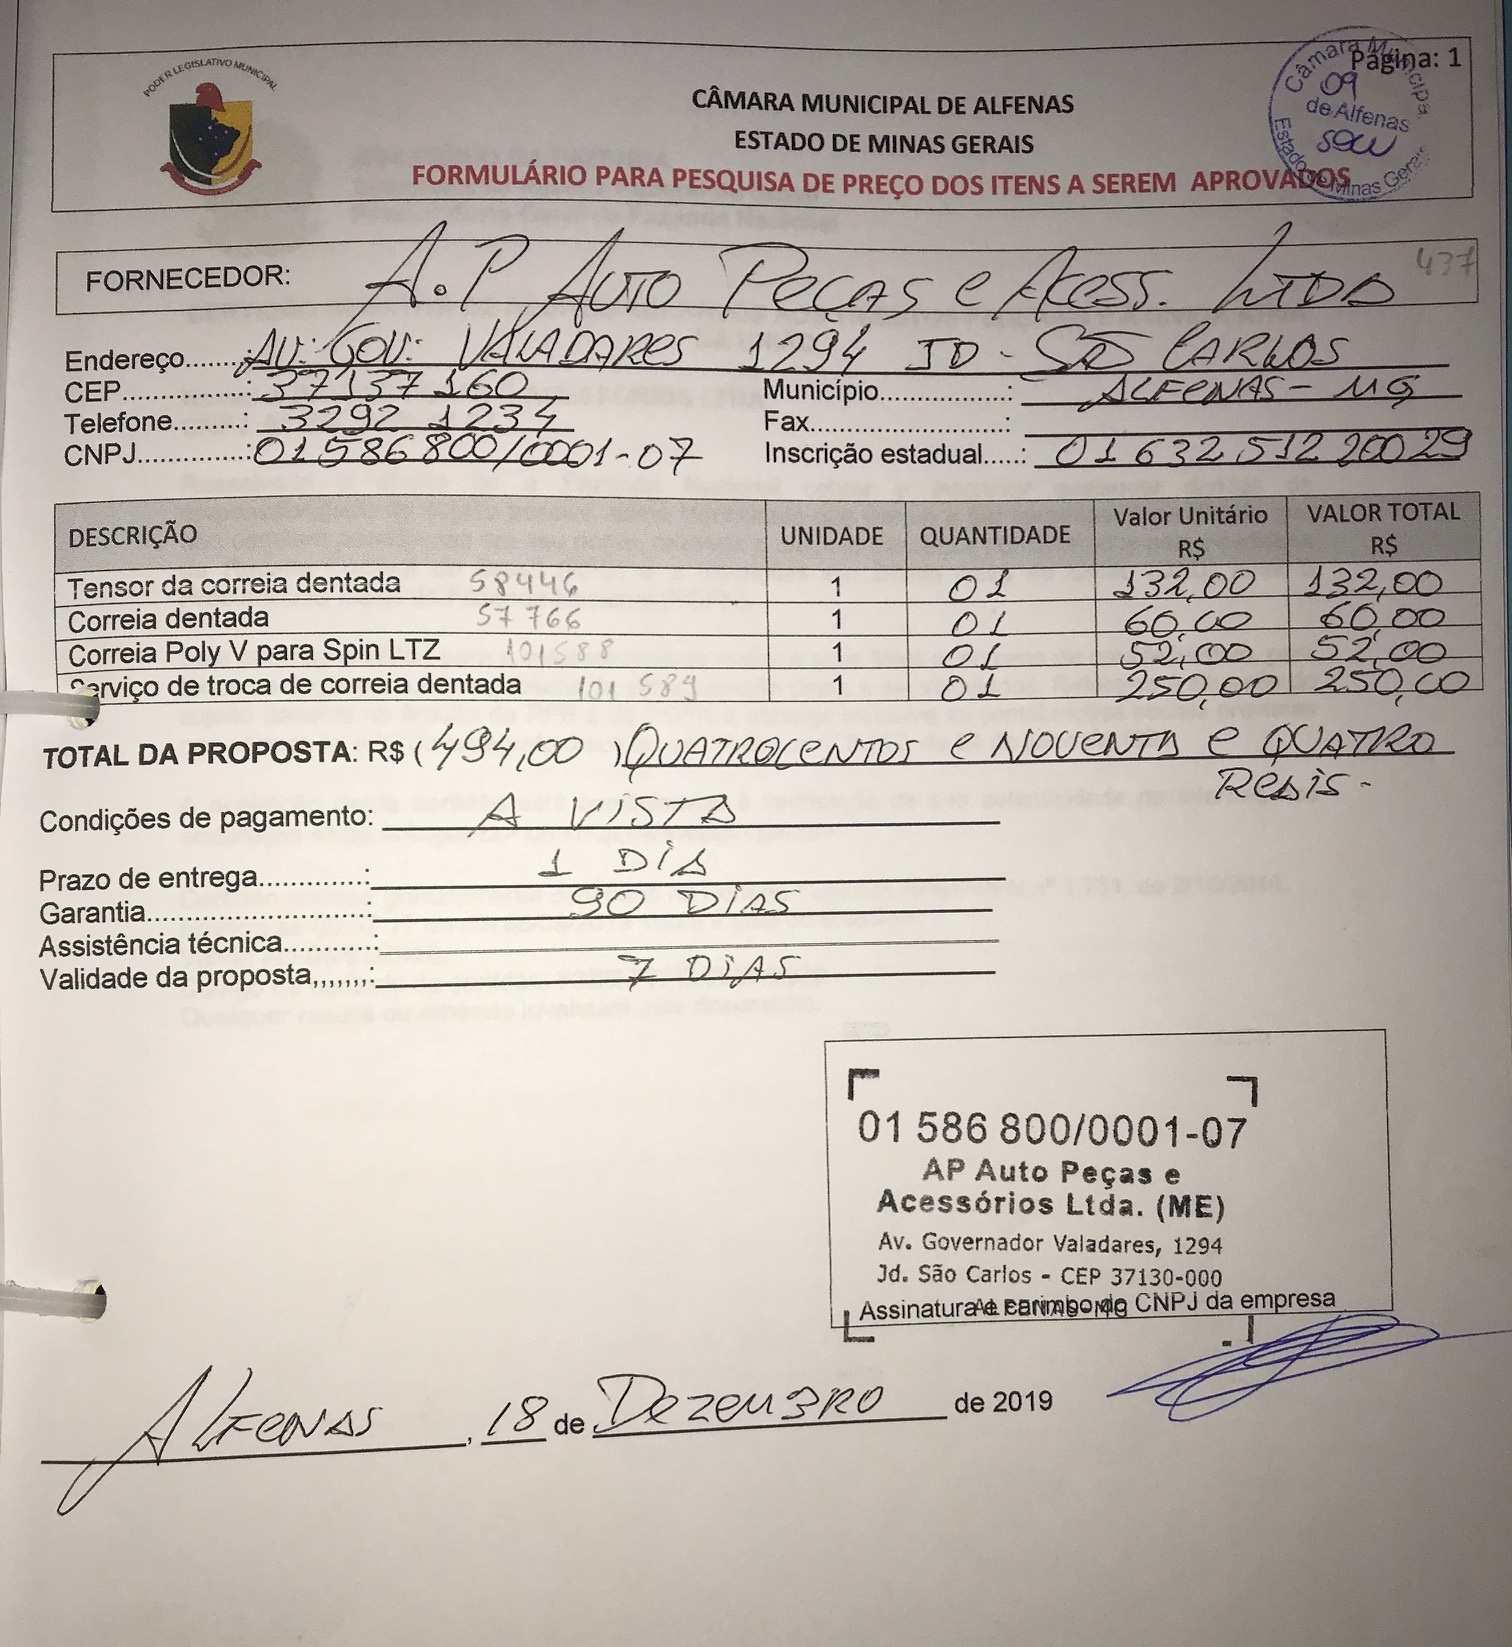 PODER LEGISLATIVO MUNICIPAL
Página: 1
Câmara Municipa
09
de Alfenas
Estado de Minas Gerais
CÂMARA MUNICIPAL DE ALFENAS
ESTADO DE MINAS GERAIS
FORMULÁRIO PARA PESQUISA DE PREÇO DOS ITENS A SEREM APROVADOS
FORNECEDOR: A.P AUTO PEÇAS e Acess. LTDA 437
Endereço.......: AV: GOV: VALADARES 1294 JD - SÃO CARLOS
CEP...............: 37137160 Município..................: ALFENAS - MG
Telefone.........: 3292 1234 Fax...........................:
CNPJ..............: 01586800/0001-07 Inscrição estadual.....: 01632 512 20029
DESCRIÇÃO UNIDADE QUANTIDADE Valor Unitário R$ VALOR TOTAL R$
Tensor da correia dentada 58446 1 01 132,00 132,00
Correia dentada 57766 1 01 60,00 60,00
Correia Poly V para Spin LTZ 101588 1 01 52,00 52,00
Serviço de troca de correia dentada 101589 1 01 250,00 250,00
TOTAL DA PROPOSTA: R$ (494,00) QUATROCENTOS e NOVENTA e QUATRO
REAIS -
Condições de pagamento: A VISTA
Prazo de entrega.............: 1 DIA
Garantia...........................: 90 DIAS
Assistência técnica...........:
Validade da proposta,,,,,,,: 7 DIAS
01 586 800/0001-07
AP Auto Peças e
Acessórios Ltda. (ME)
Av. Governador Valadares, 1294
Jd. São Carlos - CEP 37130-000
ALFENAS - MG
Assinatura e carimbo do CNPJ da empresa
ALFENAS, 18 de DEZEMBRO de 2019